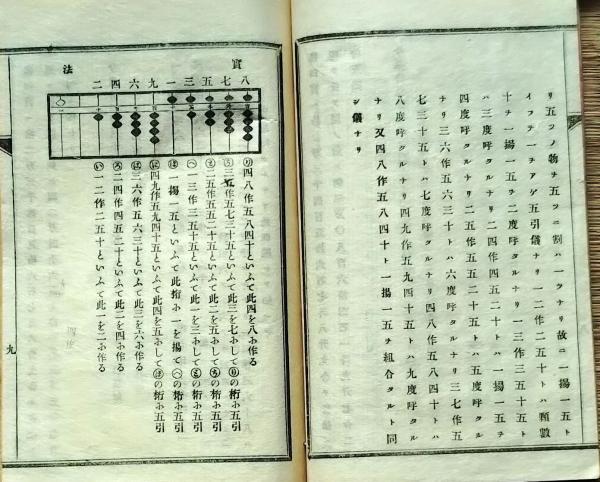 リ五ツノ物チ五ツニ割ハ一ツナリ故ニ一揚一五ト
イフテ一チアゲ五引儀ナリ一二作二五十トハ頭數
十チ一揚一五チ二度呼タルナリ一三作三五十五ト
ハ三度呼タルナリ二四作四五二十トハ
四度呼タルナリ二五作五五二十五トハ五度呼タル
ナリ三六作五六三十トハ六度呼タルナリ三七作五
七三十五トハ七度呼タルナリ四八作五八四十トハ
八度呼タルナリ四九作五九四十五トハ九度呼タル
ナリ又四八作五八四十ト一揚一五チ組合タルト同
シ儀ナリ
實
法
八
七
五
三
一
九
六
四
二
四八作五八四十といふて此四を八ホ作る
三七作五七三十五といふて此三を七ホして の桁ホ五引
二五作五五二十五といふて此二を五ホして の桁ホ五引
一三作三五十五といふて此一を三ホして の桁ホ五引
一揚一五といふて此桁ホ一を揚て の桁ホ五引
四九作五九四十五といふて此四を九ホして の桁ホ五引
三六作五六三十といふて此三を六ホ作る
二四作四五二十といふて此二を四ホ作る
一二作二五十といふて此一を二ホ作る
九